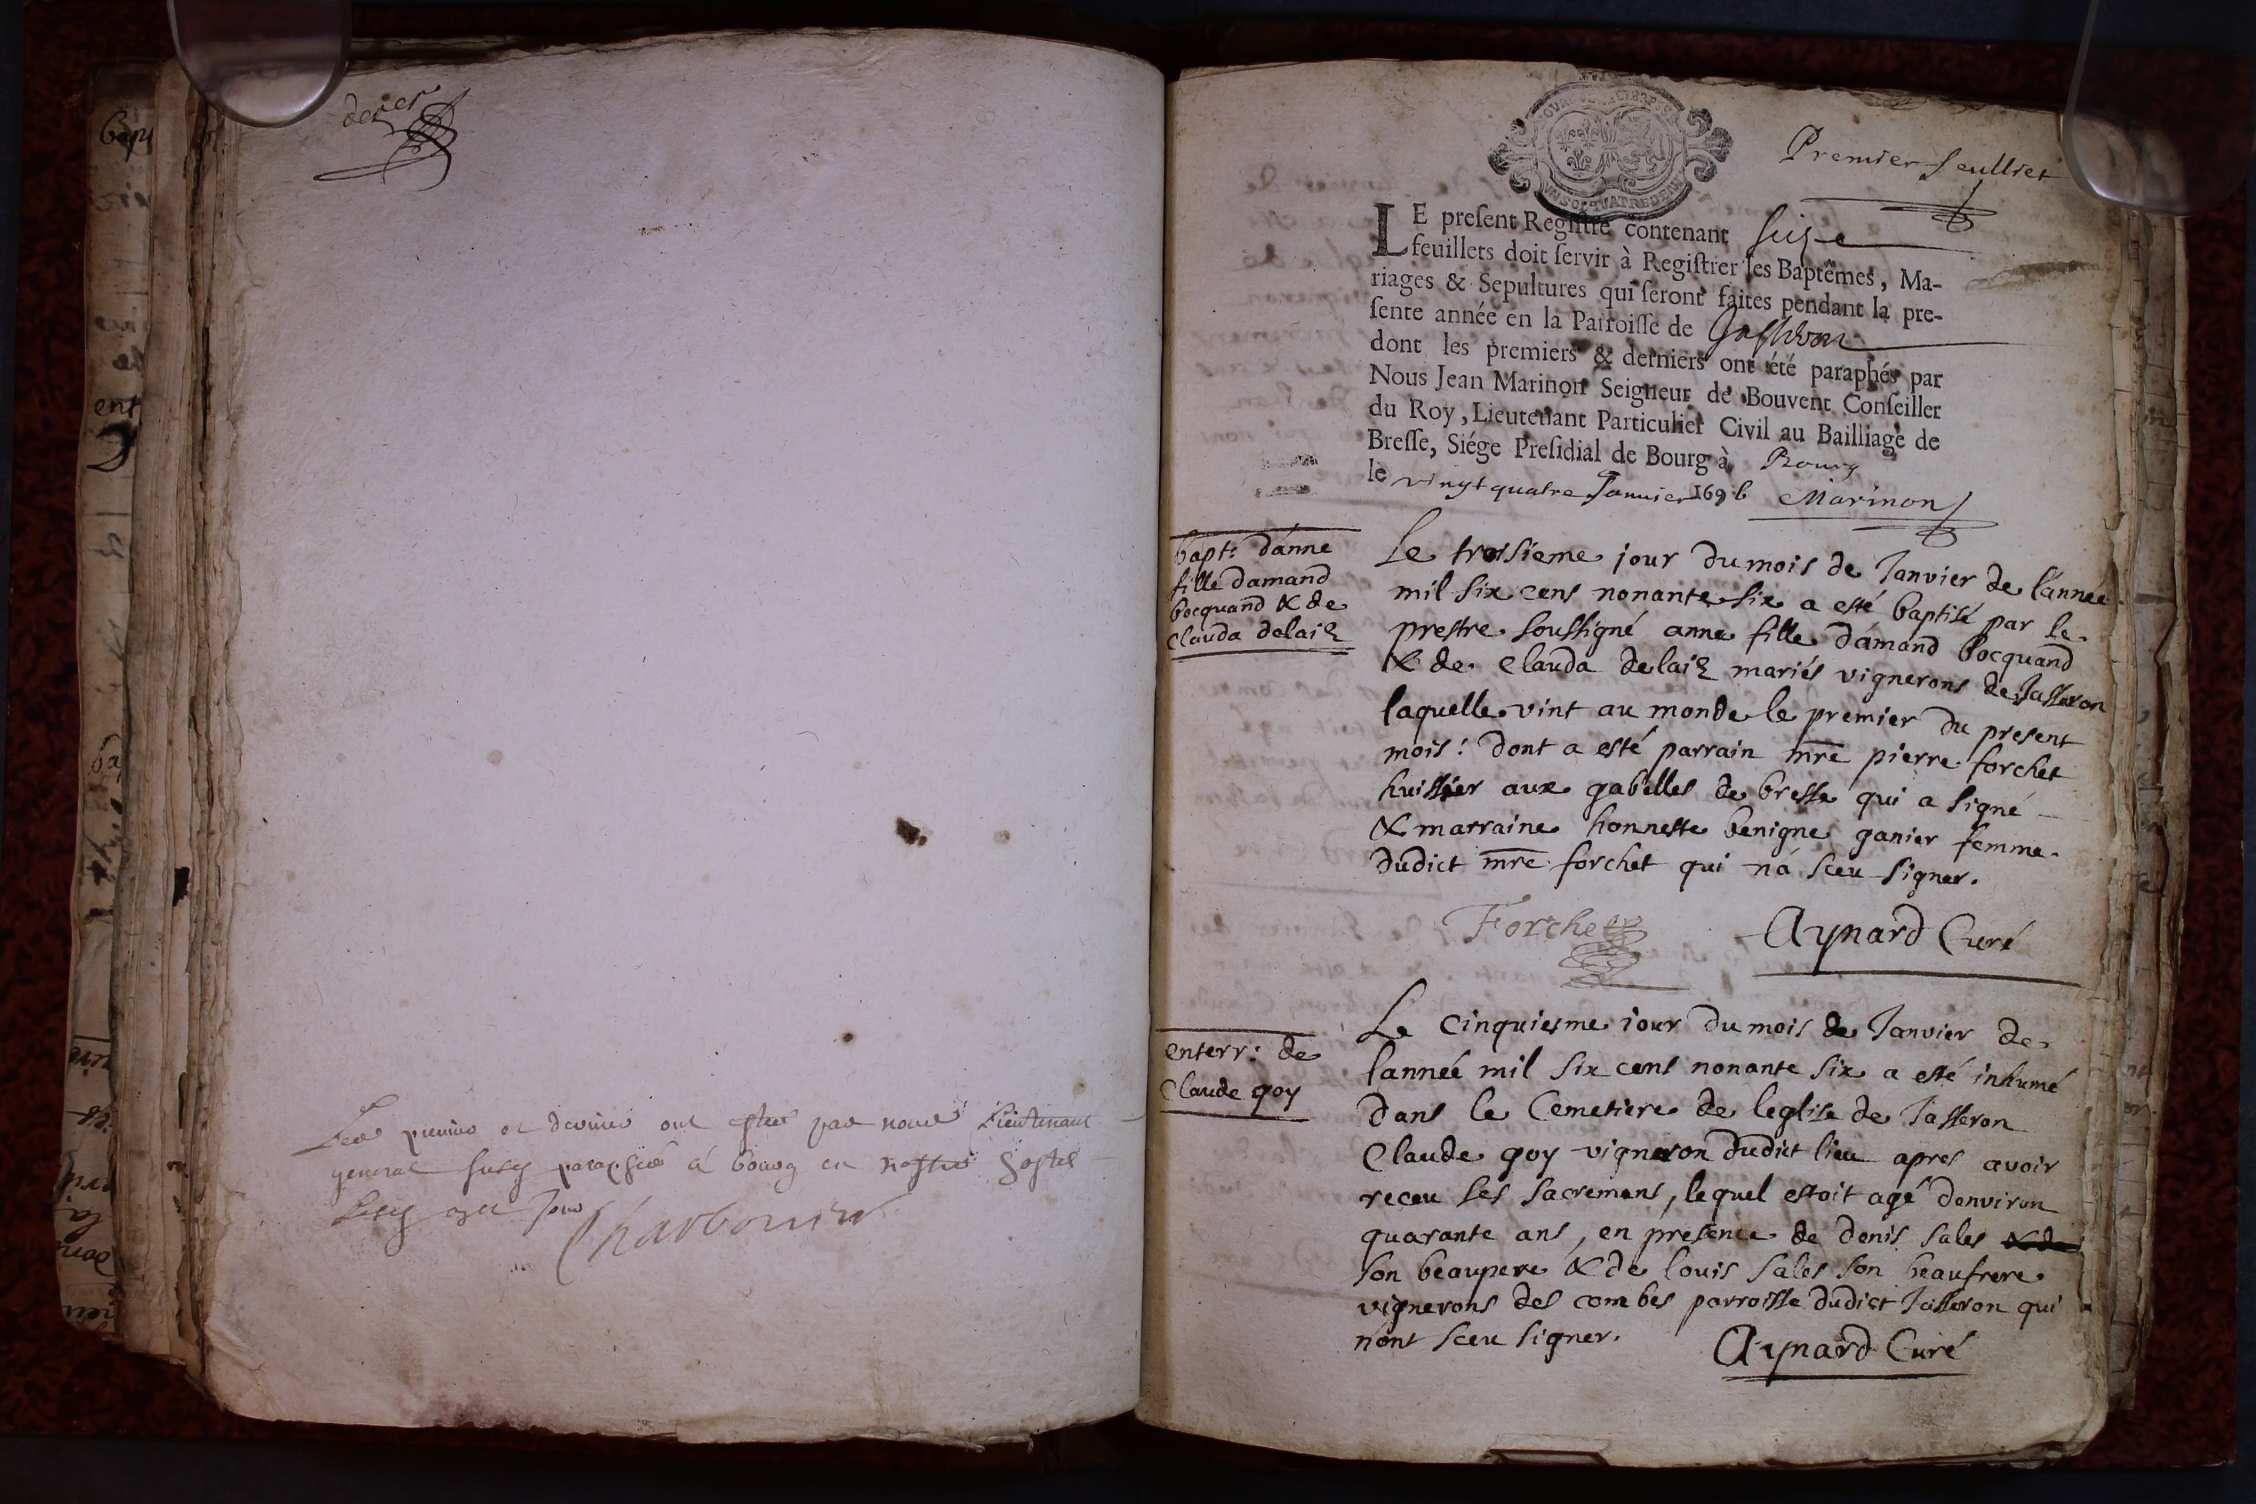 der er
Les premier et dernier ont estes par nous Lieutenant
general susd paraphés à bourg en nostre hostel
Lesd an et Jour
Charbonnier
Premier feulliet
LE preſent Regiſtre contenant seize
feuillets doit ſervir à Regiſtrer les Baptêmes, Ma-
riages & Sepultures qui ſeront faites pendant la pre-
ſente année en la Parroiſſe de Jasseron
dont les premiers & derniers ont été paraphés par
Nous Jean Marinon Seigneur de Bouvent Conſeiller
du Roy, Lieutenant Particulier Civil au Bailliage de
Breſſe, Siége Preſidial de Bourg à Bourg
le vingt quatre Janvier 1696 Marinon
bapt: d'anne
fille damand
bocquand & de
Clauda delaiz
Le troisieme jour du mois de Janvier de l'année
mil six cens nonante six a esté baptisé par le
prestre soussigné anne fille d'amand bocquand
& de Clauda delaiz mariés vignerons de Jasseron
laquelle vint au monde le premier du present
mois: dont a esté parrain mre pierre forchet
huissier aux gabelles de bresse qui a signé
& marraine honneste benigne ganier femme
dudict mre forchet qui n'a sceu signer.
Forchet
Aynard Curé
enterr: de
Claude goy
Le Cinquiesme jour du mois de Janvier de
lannée mil six cens nonante six a esté inhumé
dans le Cemetiere de leglise de Jasseron
Claude goy vigneron dudict lieu apres avoir
receu ses sacremens, lequel estoit agé d'environ
quarante ans, en presence de denis sales & de
son beaupere & de louis sales son beaufrere
vignerons des combes parroisse dudict Jasseron qui
n'ont sceu signer.
Aynard Curé